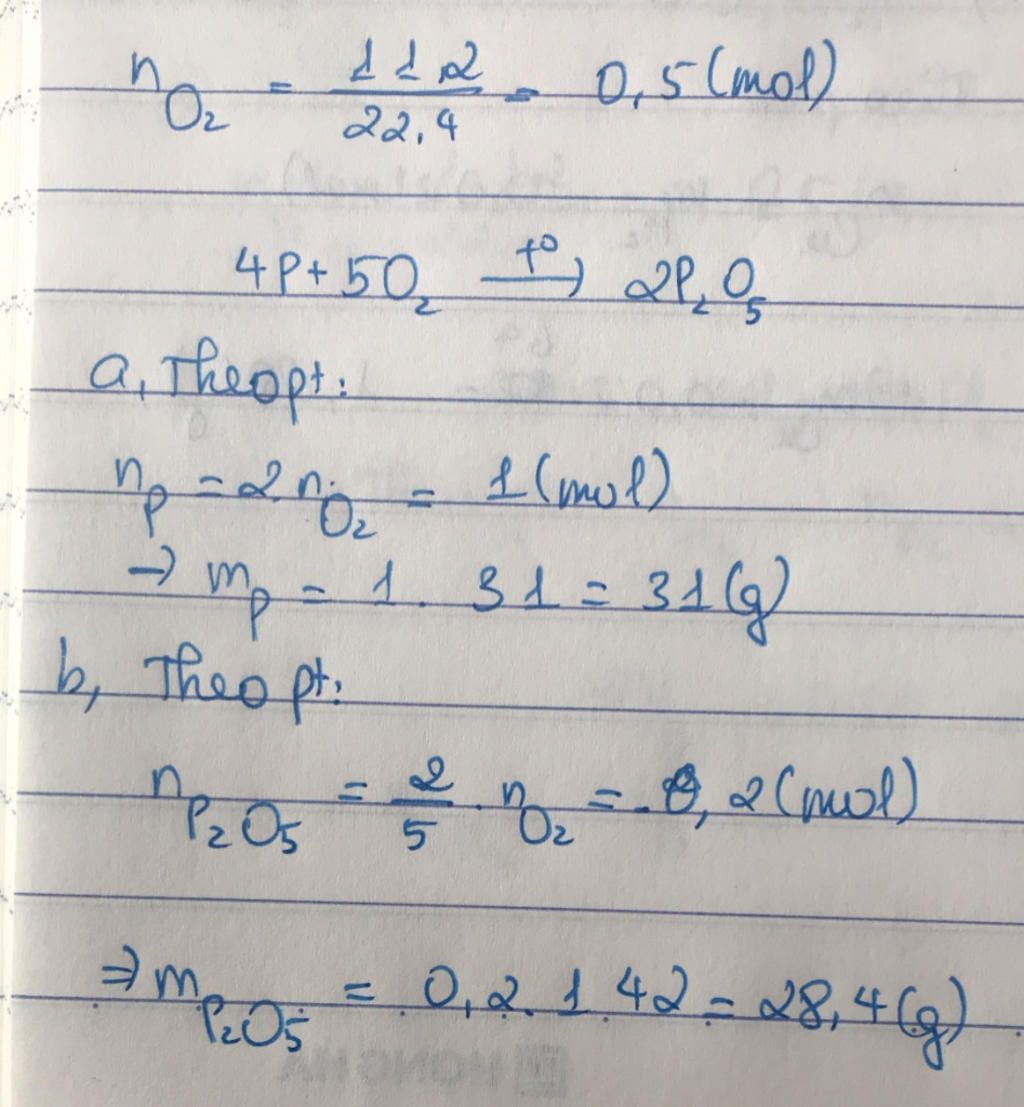 n_O₂ = 11,2/22,4 = 0,5 (mol)
4P + 5O₂ —t°→ 2P₂O₅
a, Theo pt:
n_P = 2 n_O₂ = 1 (mol)
→ m_P = 1 . 31 = 31 (g)
b, Theo pt:
n_P₂O₅ = 2/5 . n_O₂ = 0,2 (mol)
⇒ m_P₂O₅ = 0,2 . 142 = 28,4 (g)